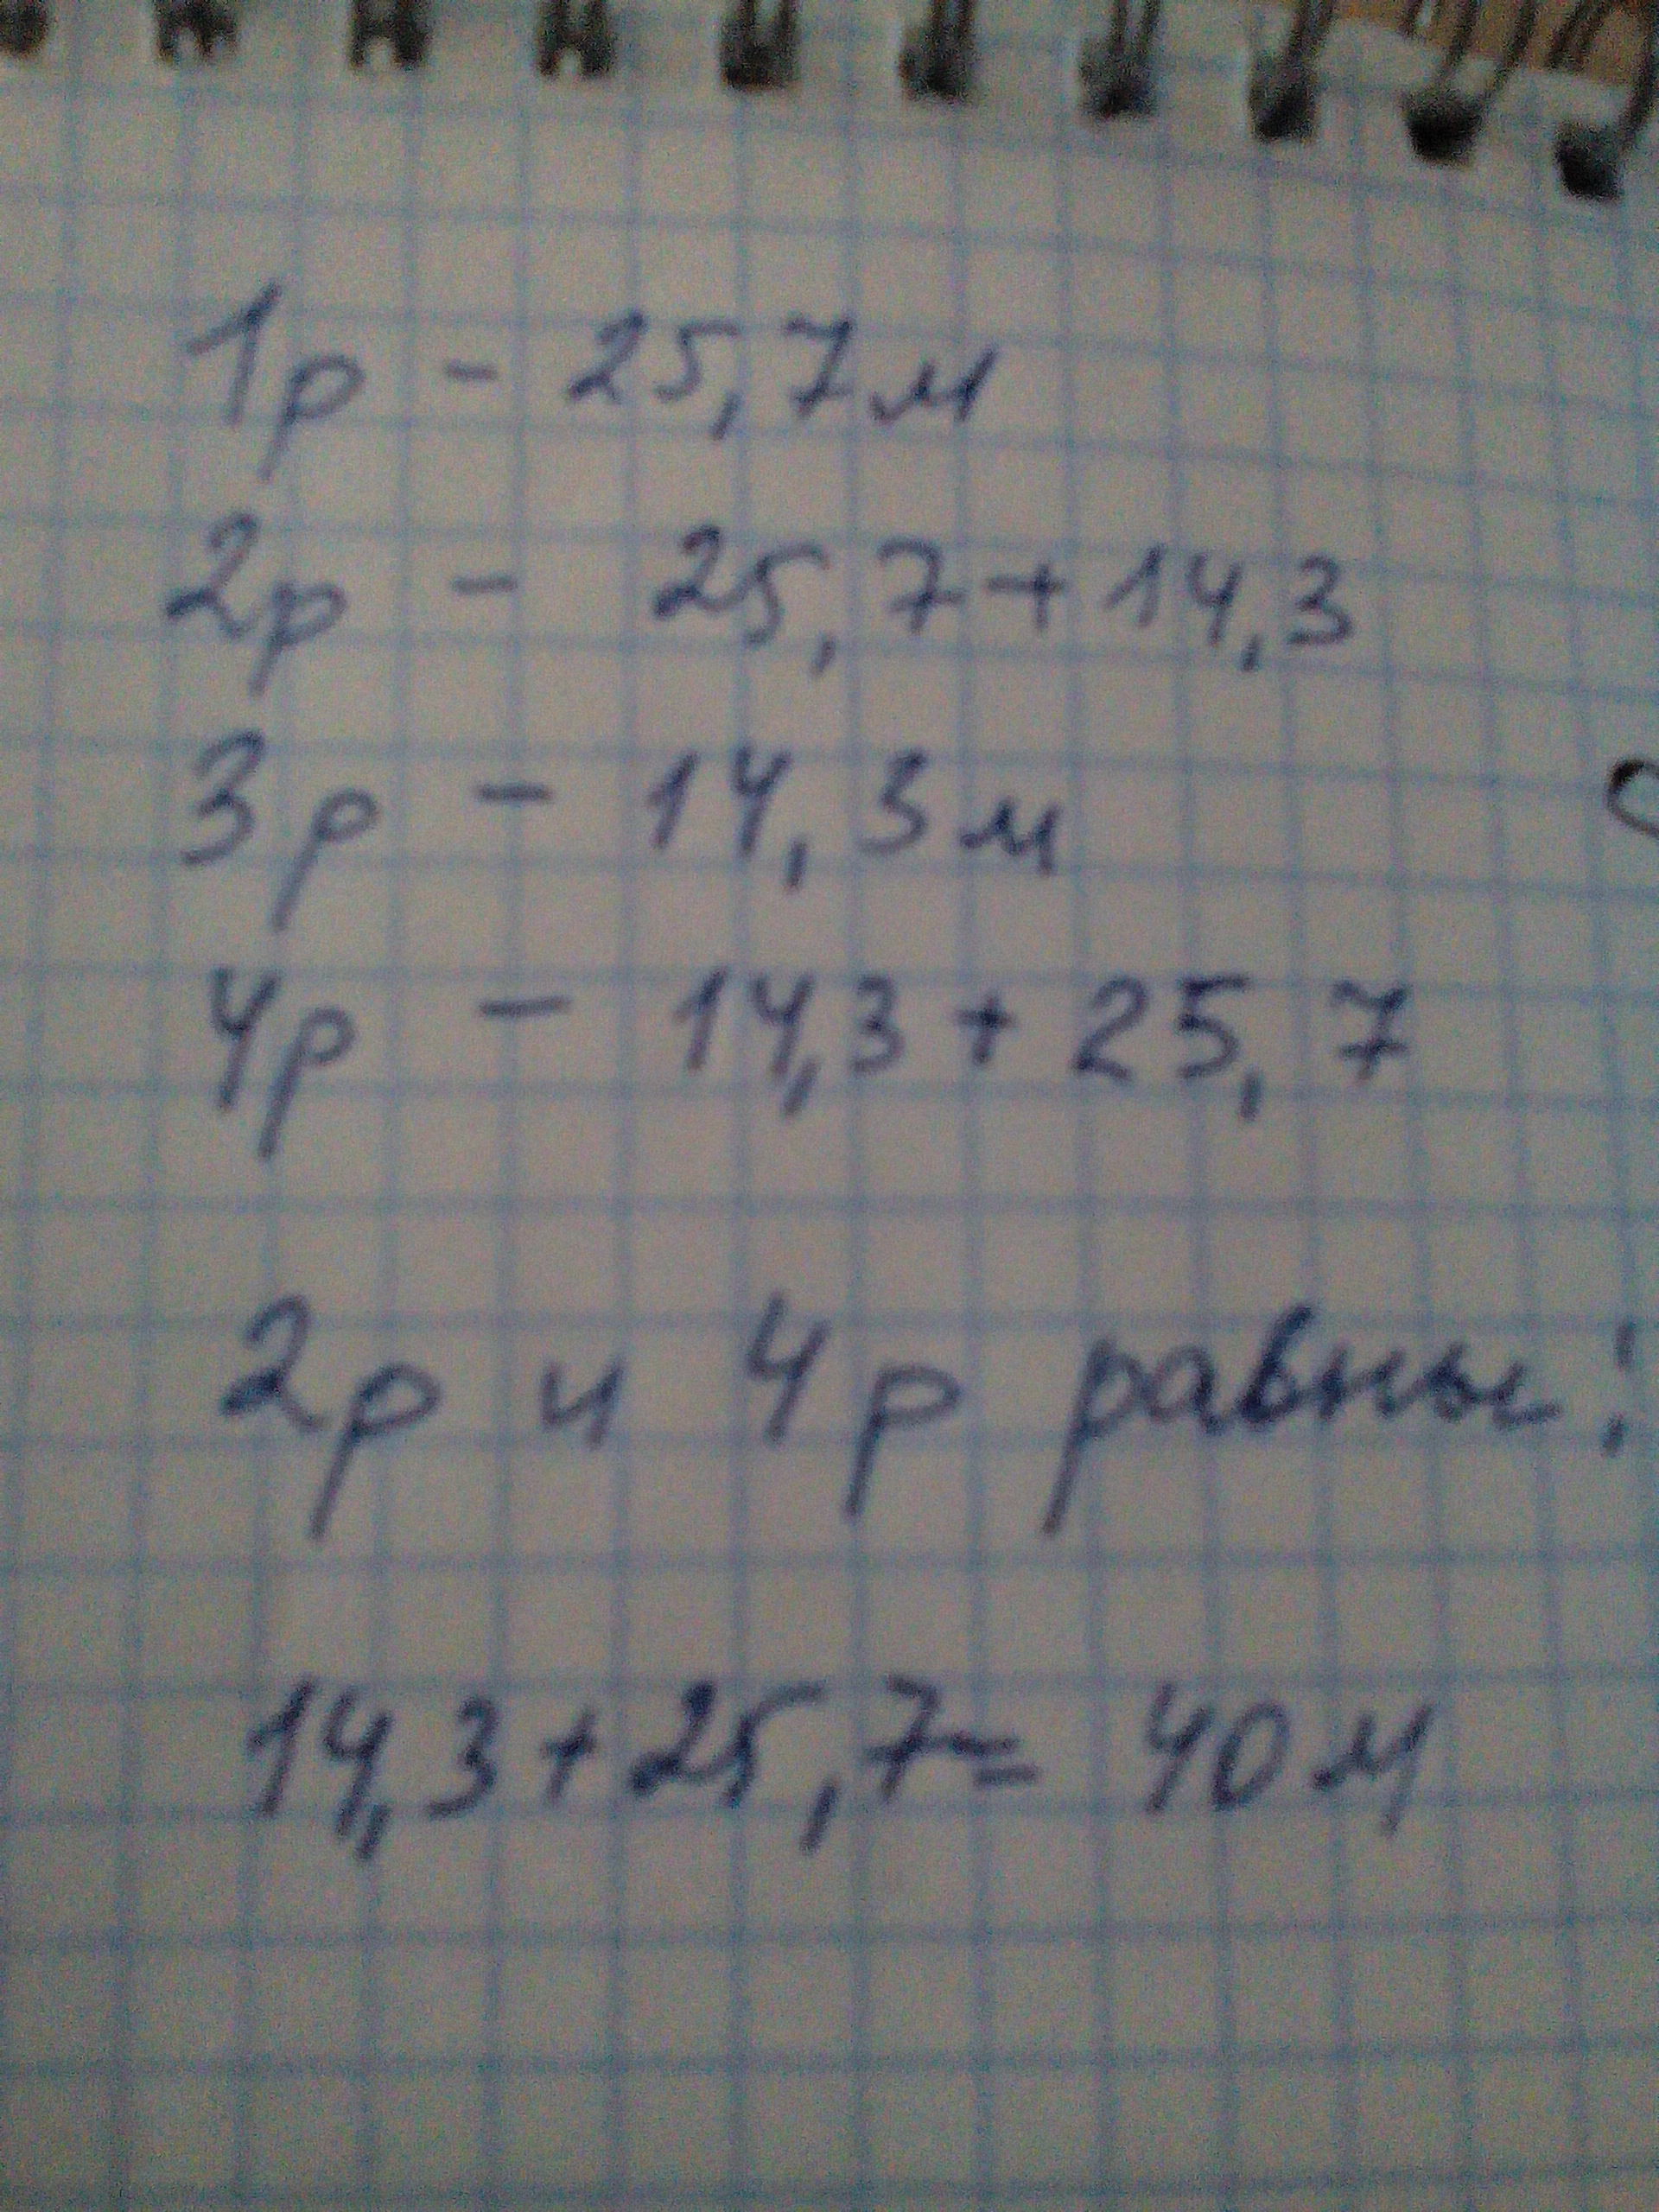 1р - 25,7м
2р - 25,7+14,3
3р - 14,3м
4р - 14,3+25,7
2р и 4р равны:
14,3+25,7= 40м